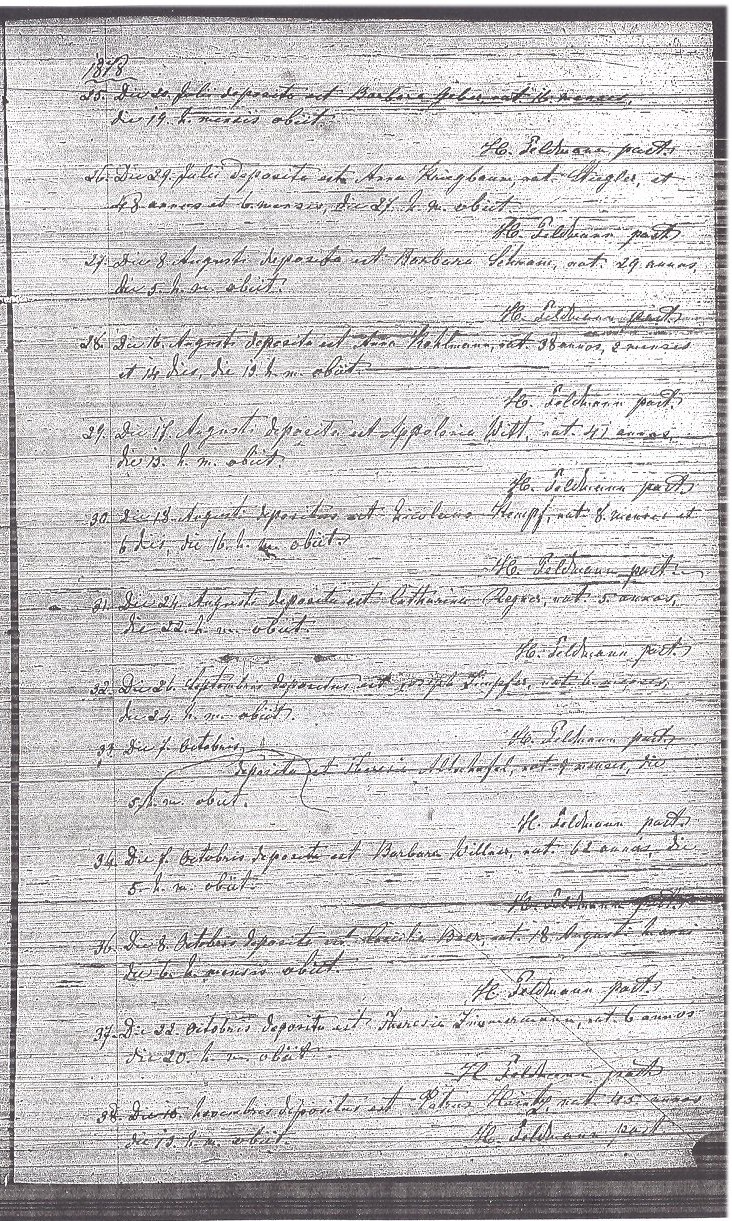 1878
25. Die 20. Juli deposita est Barbara nat. 16 menses,
die 19. h. mensis obiit.
H. Feldmann past.
26. Die 29. Julii deposita est Anna Kriegbaum, nat. Stiegler, et
48 annos et 6 mensis, die 27. h. m. obiit
H. Feldmann past.
27. Die 8. Augusti deposita est Barbara Schram, nat. 29 annos,
die 5. h. m. obiit.
H. Feldmann past.
28. Die 16. Augusti deposita est Anna Kohlmann, nat 38 annos, 2 menses
et 14 dies, die 13. h. m. obiit
H. Feldmann past.
29. Die 17. Augusti deposita est Appolonia Witt, nat. 47 annos,
die 15. h. m. obiit.
H. Feldmann past.
30. Die 18. Augusti depositus est Nicolaus Kempf, nat. 8. menses et
6 dies, die 16. h. m. obiit.
H. Feldmann past.
31. Die 24. Augusti deposita est Catharina Regner, nat 5 annos,
die 22. h. m. obiit.
H. Feldmann past.
32. Die 26. Septembris depositus est Joseph nat 6 menses,
die 24. h. m. obiit.
H. Feldmann past.
33. Die 7. Octobris
deposita est Theresia nat 9 menses, die
5. h. m. obiit.
H. Feldmann past.
34. Die 7. Octobris deposita est Barbara Willner, nat. 62 annos, die
5. h. m. obiit.
H. Feldmann past.
36. Die 8. Octobris deposita est Caecilia Baer, nat. 18 Augusti h. anni
die 6. h. mensis obiit.
H. Feldmann past.
37. Die 22. Octobris deposita est Theresia Zimmermann, nat. 6 annos
die 20. h. m. obiit.
H. Feldmann past.
38. Die 15. Novembris depositus est Petrus nat 45 annos
die 13. h. m. obiit.
H. Feldmann past